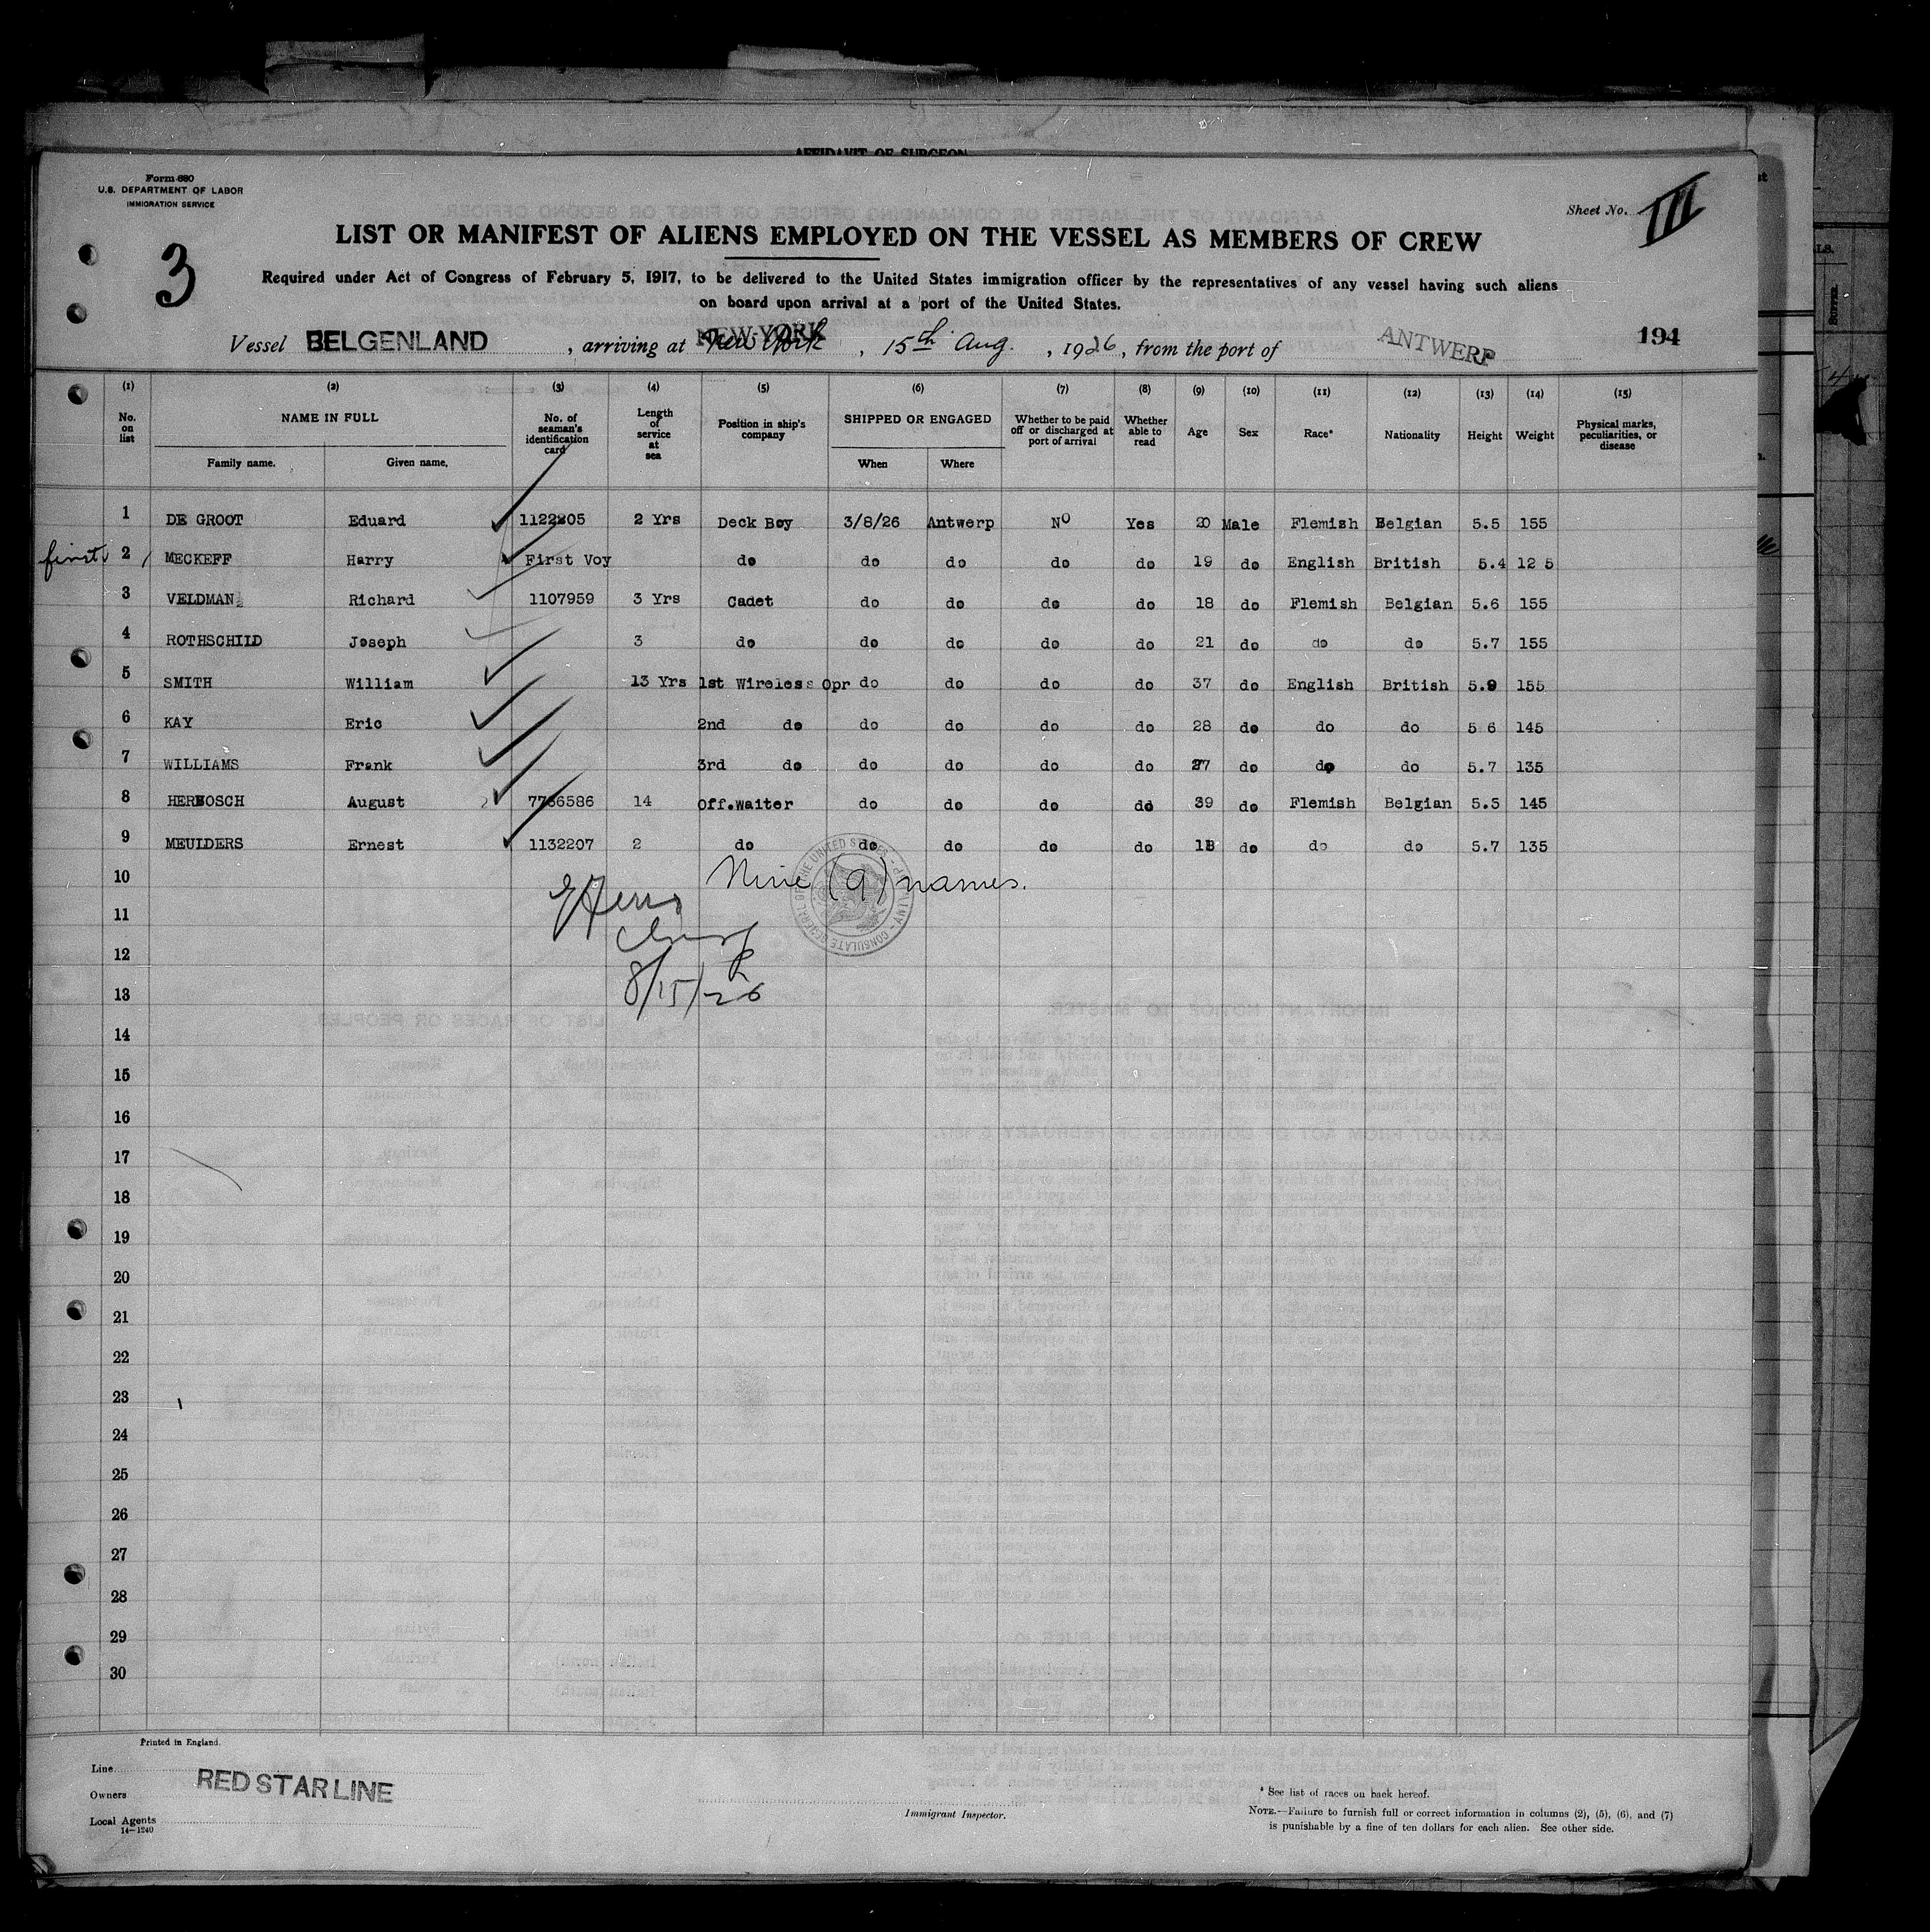 AFFIDAVIT OF SURGEON
Form 680
U.S. DEPARTMENT OF LABOR
IMMIGRATION SERVICE
Sheet No. III
3
LIST OR MANIFEST OF ALIENS EMPLOYED ON THE VESSEL AS MEMBERS OF CREW
Required under Act of Congress of February 5, 1917, to be delivered to the United States immigration officer by the representatives of any vessel having such aliens
on board upon arrival at a port of the United States.
Vessel BELGENLAND, arriving at NEW YORK New York, 15th Aug., 1926, from the port of ANTWERP 194
(1) (2) (3) (4) (5) (6) (7) (8) (9) (10) (11) (12) (13) (14) (15)
No. on list NAME IN FULL No. of seaman's identification card Length of service at sea Position in ship's company SHIPPED OR ENGAGED Whether to be paid off or discharged at port of arrival Whether able to read Age Sex Race* Nationality Height Weight Physical marks, peculiarities, or disease
Family name. Given name. When Where
1 DE GROOT Eduard 1122205 2 Yrs Deck Boy 3/8/26 Antwerp NO Yes 20 Male Flemish Belgian 5.5 155
first 2 MECKEFF Harry First Voy do do do do do 19 do English British 5.4 12 5
3 VELDMAN Richard 1107959 3 Yrs Cadet do do do do 18 do Flemish Belgian 5.6 155
4 ROTHSCHILD Joseph 3 do do do do do 21 do do do 5.7 155
5 SMITH William 13 Yrs 1st Wireless Opr do do do do 37 do English British 5.9 155
6 KAY Eric 2nd do do do do do 28 do do do 5 6 145
7 WILLIAMS Frank 3rd do do do do do 27 do do do 5.7 135
8 HERBOSCH August 7756586 14 Off.waiter do do do do 39 do Flemish Belgian 5.5 145
9 MEULDERS Ernest 1132207 2 do do do do do 18 do do do 5.7 135
10 Nine (9) names.
11
12
13 8/15/26
14
15
16
17
18
19
20
21
22
23
24
25
26
27
28
29
30
Printed in England.
Line
RED STAR LINE
Owners
Local Agents
14—1240
Immigrant Inspector.
* See list of races on back hereof.
NOTE.—Failure to furnish full or correct information in columns (2), (5), (6), and (7)
is punishable by a fine of ten dollars for each alien. See other side.